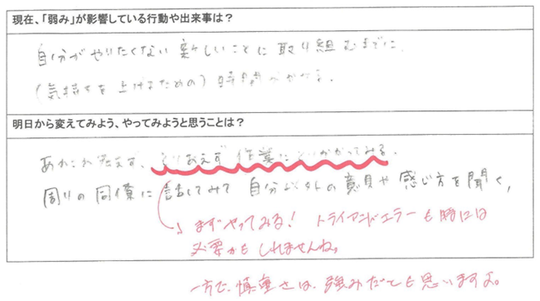 現在、「弱み」が影響している行動や出来事は？
自分がやりたくない新しいことに取り組むまでに、
（気持ちを上げるための）時間がかかる。
明日から変えてみよう、やってみようと思うことは？
あれこれ考えず、とりあえず作業にとりかかってみる。
周りの同僚に話してみて自分以外の意見や感じ方を聞く。
まずやってみる！トライアンドエラーも時には
必要かもしれませんね。
一方で、慎重さは、強みだとも思いますよ。